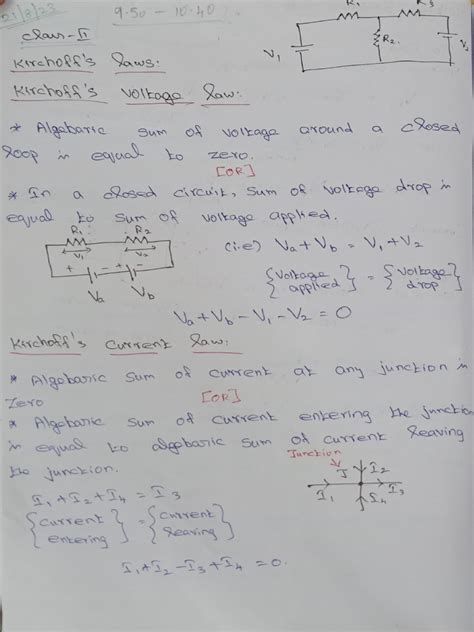 21/2/23
9.50 - 10.40
Class-II
R1 R3
R2
V1
Kirchoff's Laws:
Kirchoff's Voltage law:
* Algebaric sum of voltage around a closed
loop is equal to zero.
[OR]
* In a closed circuit, sum of voltage drop is
equal to sum of voltage applied.
R1 R2
V1 V2
+ - + -
Va Vb
(i.e) Va + Vb = V1 + V2
{Voltage applied} = {Voltage drop}
Va + Vb - V1 - V2 = 0
Kirchoff's Current Law:
* Algebaric sum of current at any junction is
Zero
[OR]
* Algebaric sum of current entering the junction
is equal to algebaric sum of current leaving
the junction.
Junction
J I2
I1 I3
I4
I1 + I2 + I4 = I3
{Current entering} = {Current leaving}
I1 + I2 - I3 + I4 = 0.